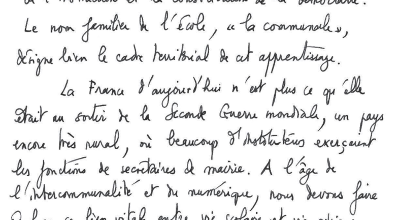 de l'
la construction de la démocratie.
Le nom familier de l'École, « la communale »,
désigne bien le cadre territorial de cet apprentissage.
La France d'aujourd'hui n'est plus ce qu'elle
était au sortir de la Seconde Guerre mondiale, un pays
encore très rural, où beaucoup d'instituteurs exerçaient
les fonctions de secrétaires de mairie. A l'âge de
l'intercommunalité et du numérique, nous devons faire
ce lien vital entre vie scolaire et vie